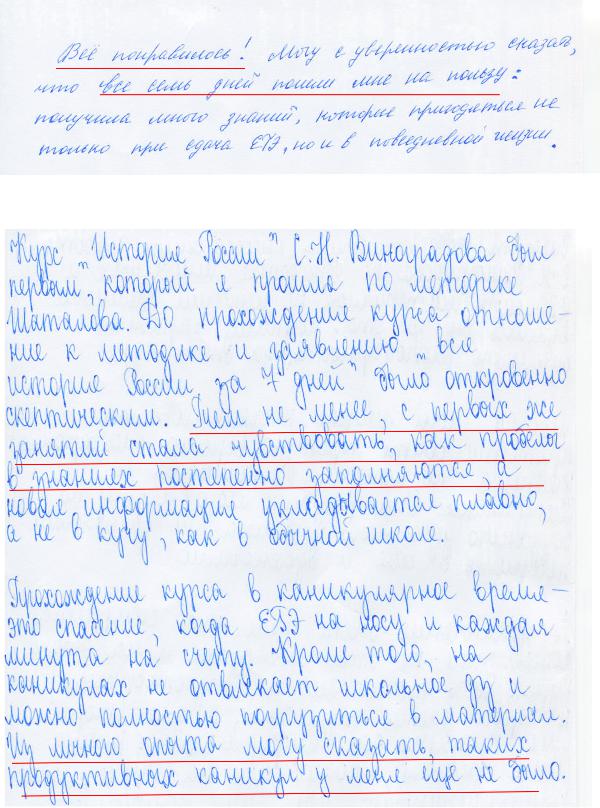 Всё понравилось! Могу с уверенностью сказать,
что все семь дней пошли мне на пользу:
получила много знаний, которые пригодяться не
только при сдача ЕГЭ, но и в повседневной жизни.
Курс "История России" С.Н. Виноградова был
первым, который я прошла по методике
Шаталова. До прохождения курса отноше-
ние к методике и заявлению "вся
история России за 7 дней" было откровенно
скептическим. Тем не менее, с первых же
занятий стала чувствовать, как пробелы
в знаниях постепенно заполняются, а
новая информация укладывается плавно,
а не в кучу, как в обычной школе.
Прохождение курса в каникулярное время -
это спасение, когда ЕГЭ на носу и каждая
минута на счету. Кроме того, на
каникулах не отвлекает школьное дз и
можно полностью погрузиться в материал.
Из личного опыта могу сказать, таких
продуктивных каникул у меня еще не было.